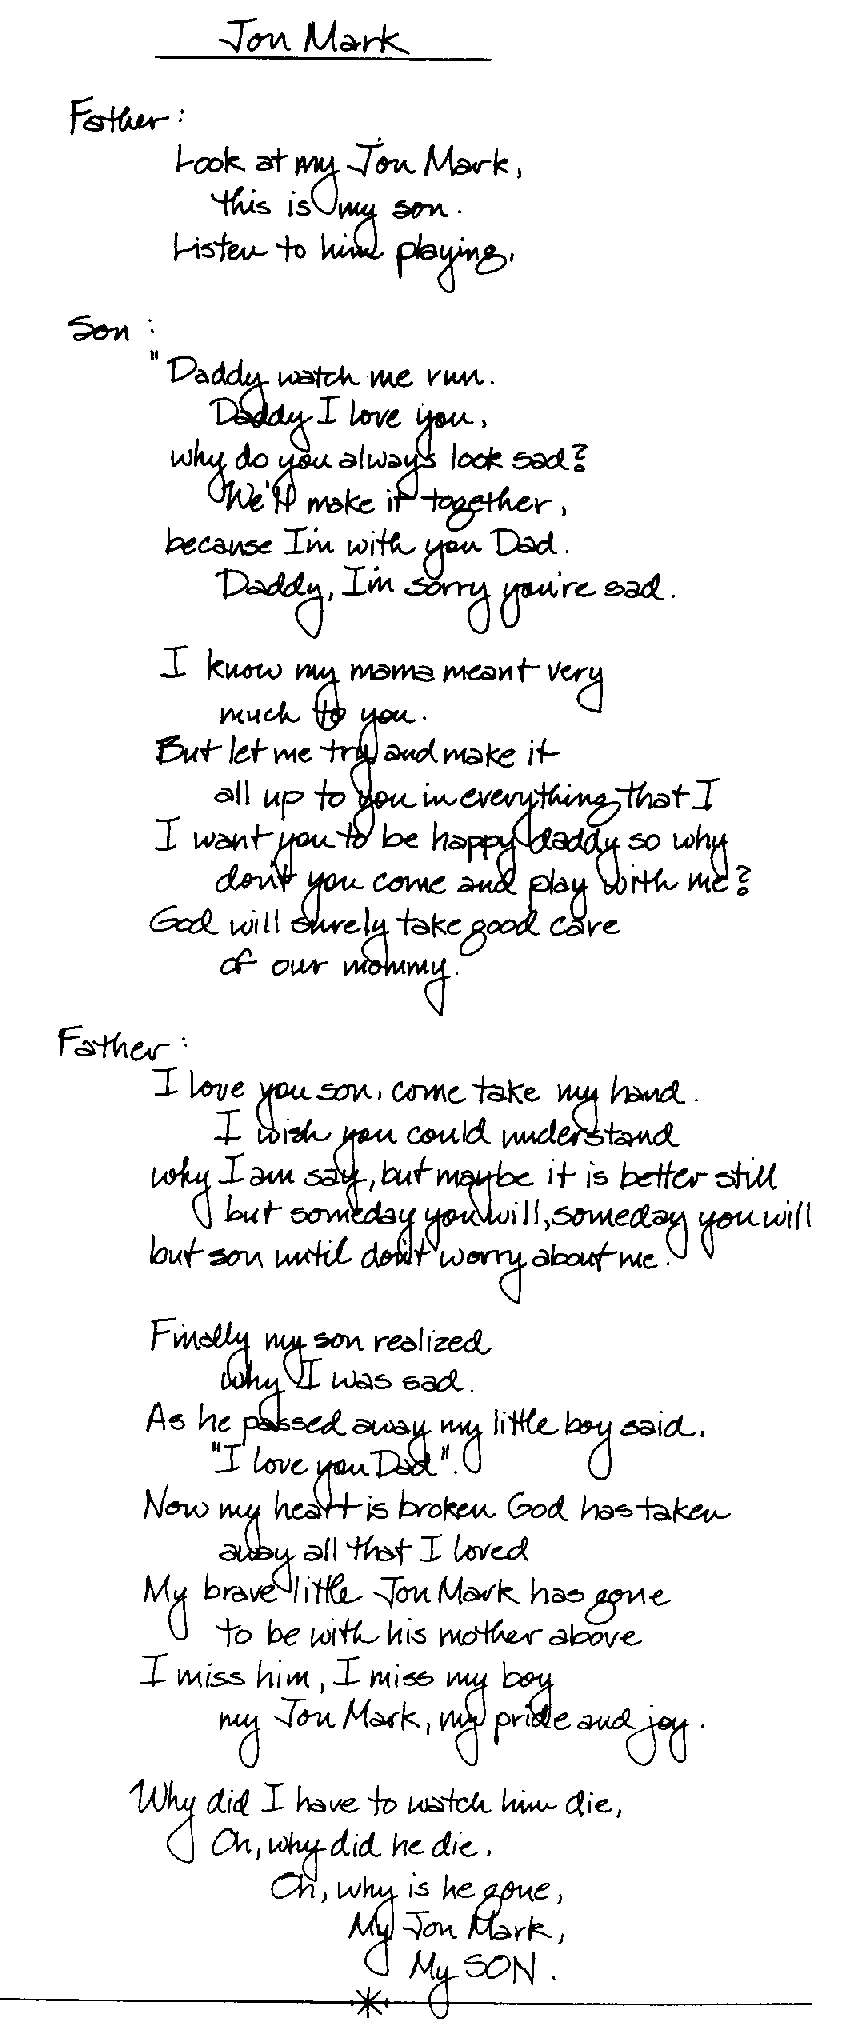 Jon Mark
Father:
Look at my Jon Mark,
this is my son.
Listen to him playing,
Son:
"Daddy watch me run.
Daddy I love you,
why do you always look sad?
We'll make it together,
because I'm with you Dad.
Daddy, I'm sorry you're sad.
I know my mama meant very
much to you.
But let me try and make it
all up to you in everything that I
I want you to be happy daddy so why
don't you come and play with me?
God will surely take good care
of our mommy.
Father:
I love you son, come take my hand.
I wish you could understand
why I am say, but maybe it is better still
but someday you will, someday you will
but son until don't worry about me.
Finally my son realized
why I was sad.
As he passed away my little boy said,
"I love you Dad".
Now my heart is broken God has taken
away all that I loved
My brave little Jon Mark has gone
to be with his mother above
I miss him, I miss my boy
my Jon Mark, my pride and joy.
Why did I have to watch him die,
Oh, why did he die.
Oh, why is he gone,
My Jon Mark,
My SON.